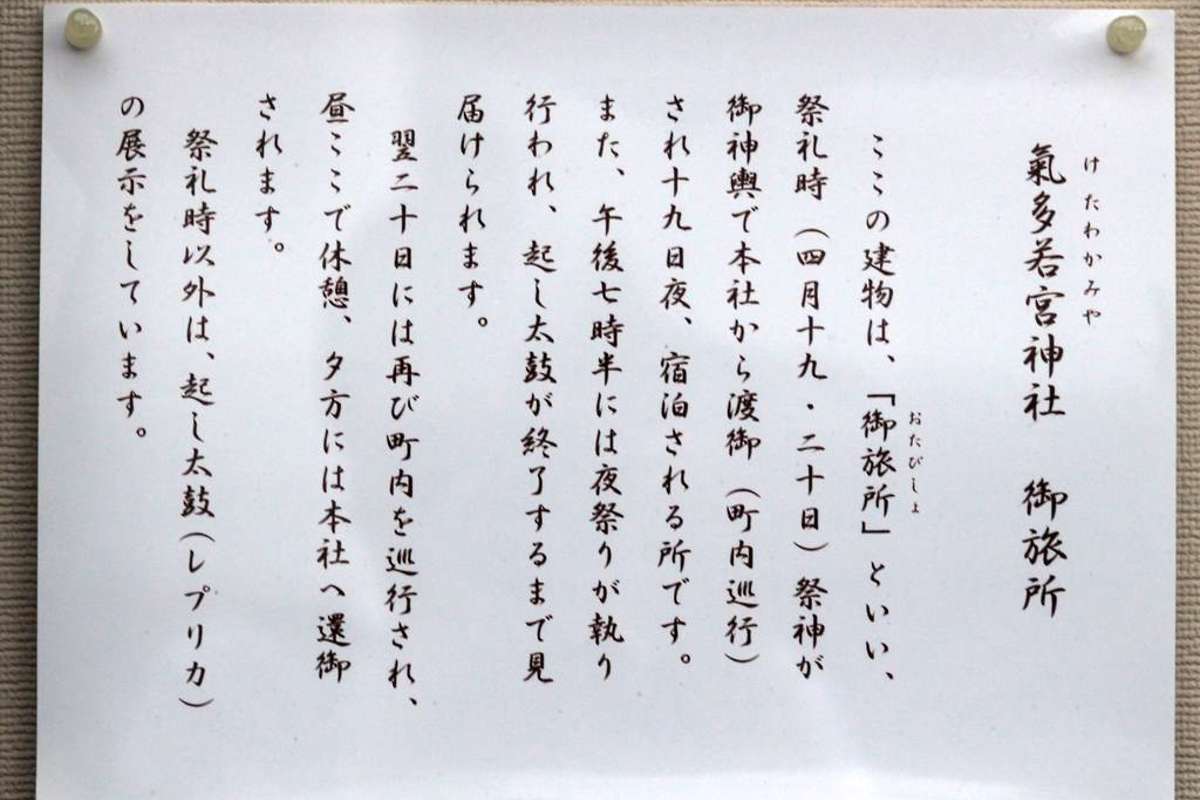 けたわかみや
氣多若宮神社　御旅所
おたびしょ
ここの建物は、「御旅所」といい、
祭礼時（四月十九・二十日）祭神が
御神輿で本社から渡御（町内巡行）
され十九日夜、宿泊される所です。
また、午後七時半には夜祭りが執り
行われ、起し太鼓が終了するまで見
届けられます。
翌二十日には再び町内を巡行され、
昼ここで休憩、夕方には本社へ還御
されます。
祭礼時以外は、起し太鼓（レプリカ）
の展示をしています。